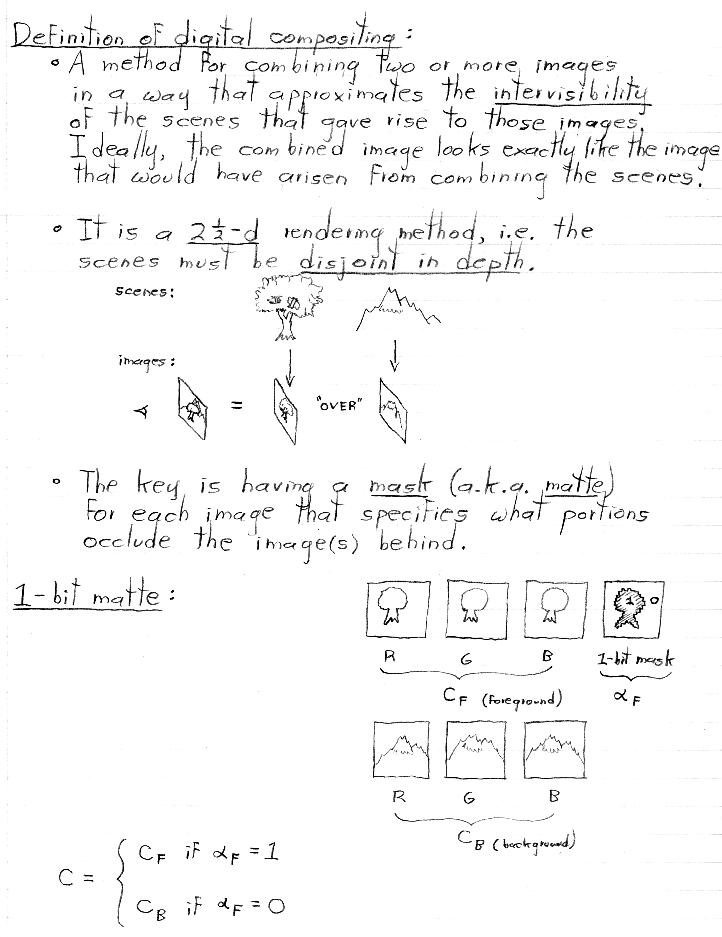 Definition of digital compositing:
• A method for combining two or more images
in a way that approximates the intervisibility
of the scenes that gave rise to those images.
Ideally, the combined image looks exactly like the image
that would have arisen from combining the scenes.
• It is a 2½-d rendering method, i.e. the
scenes must be disjoint in depth.
scenes:
images:
= "OVER"
• The key is having a mask (a.k.a. matte)
for each image that specifies what portions
occlude the image(s) behind.
1-bit matte:
1 0
R G B 1-bit mask
C_F (foreground) α_F
R G B
C_B (background)
C = { C_F if α_F = 1
C_B if α_F = 0